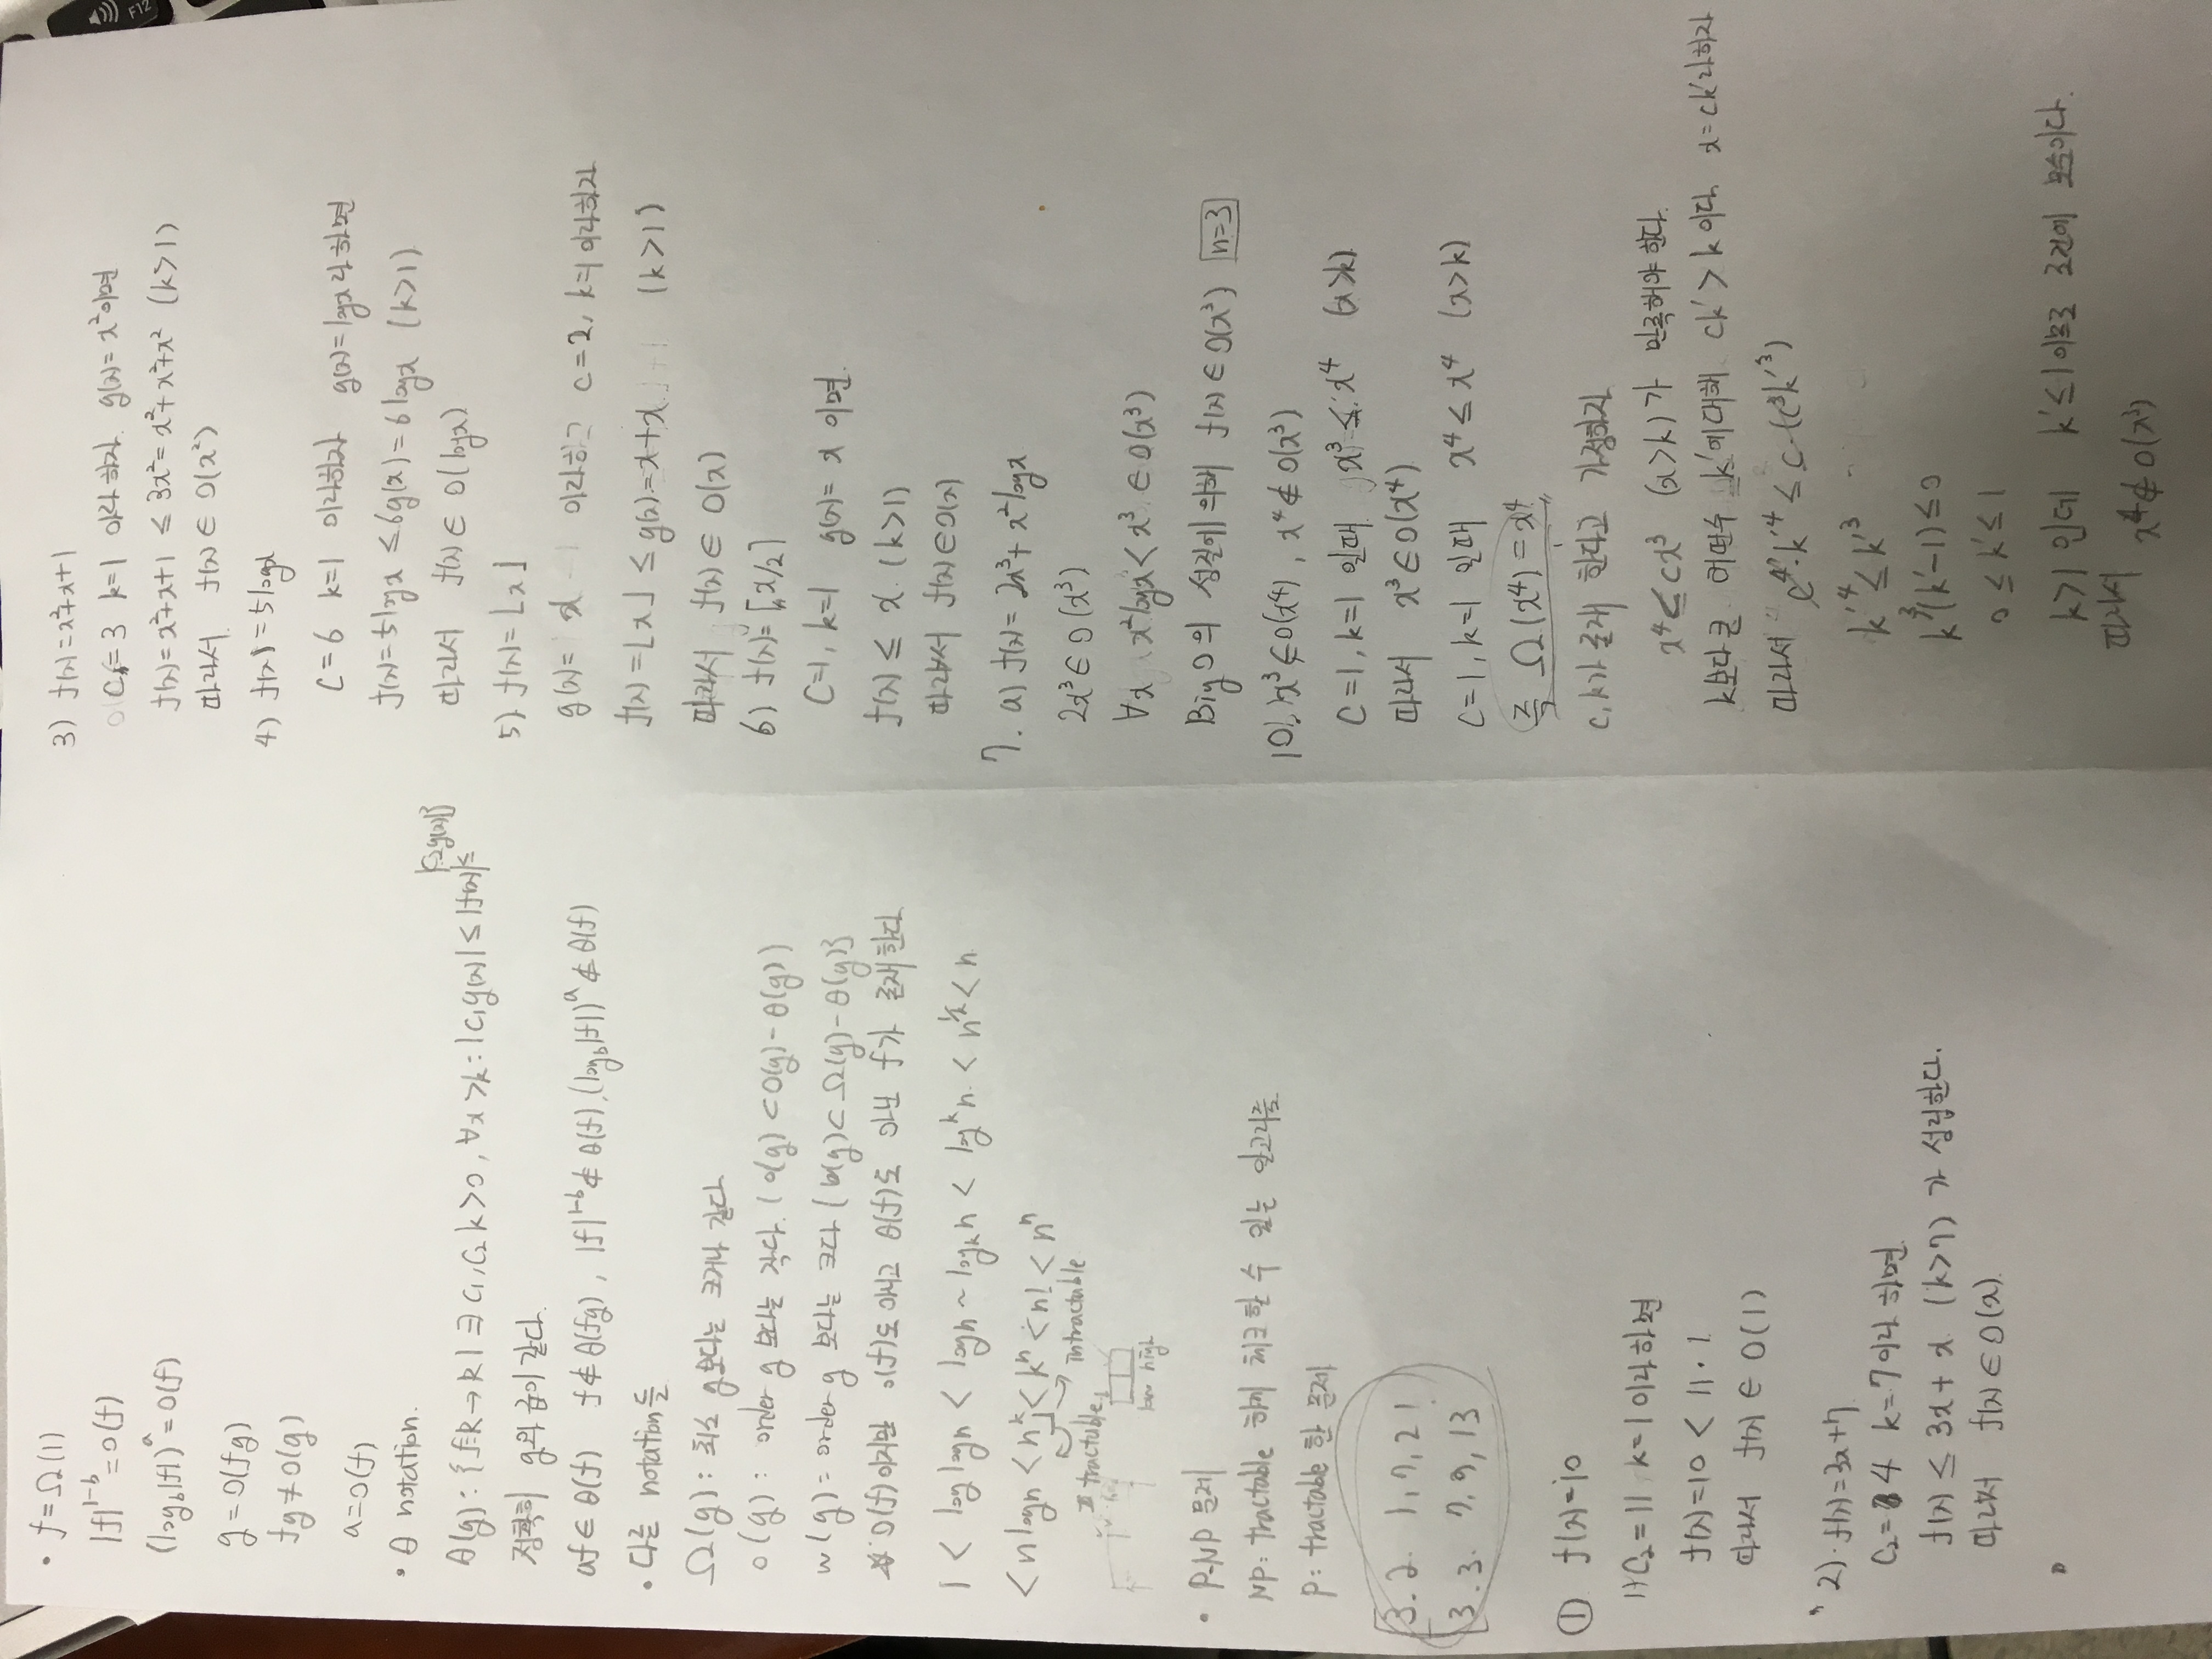 • f=Ω(1)
|f|^{1-b}=O(f)
(log_b|f|)^a=O(f)
g=O(fg)
fg≠O(g)
a=O(f)
• θ notation.
|c₂g(x)|}
θ(g): {f:R→R | ∃ c₁, c₂ k>0, ∀x>k: |c₁g(x)| ≤ |f(x)| ≤
정확히 g와 급이 같다.
af∈θ(f) f∉θ(fg), |f|^{1-b}∉θ(f), (log_b|f|)^a∉θ(f)
• 다른 notation들
Ω(g): 최소 g보다는 크거나 같다
o(g): order g 보다는 작다. (o(g)⊂O(g)-θ(g))
w(g)= order g 보다는 크다 (w(g)⊂Ω(g)-θ(g)}
O(f)이지만 o(f)도 아니고 θ(f)도 아닌 f가 존재한다
1 < log logn < logn ~ log_k n < log^k n < n^{1/k} < n
< n logn < n^k < k^n < n! < n^n
tractable intractable
low high
• P-NP 문제
NP: tractable 하게 체크할 수 있는 알고리즘
P: tractable 한 문제
3. 2. 1, 7, 21
3. 3. 7, 9, 13
① f(x)=10
1) C₂=11 k=1이라하면
f(x)=10 < 11·1
따라서 f(x) ∈ O(1)
2) f(x)=3x+7
C₂=4 k=7이라 하면
f(x) ≤ 3x+x (k>7) 가 성립한다.
따라서 f(x)∈O(x)
3) f(x)=x²+x+1
C=3 k=1 이라 하자. g(x)=x²이면
f(x)=x²+x+1 ≤ 3x²=x²+x²+x² (k>1)
따라서 f(x)∈O(x²)
4) f(x)=5logx
C=6 k=1 이라하자 g(x)=logx라 하면
f(x)=5logx ≤6g(x)=6logx (k>1)
따라서 f(x)∈O(logx)
5) f(x)=⌊x⌋
g(x)= x 이라하고 c=2, k=1이라하자
f(x)=⌊x⌋ ≤ g(x)=x+x (k>1)
따라서 f(x)∈O(x)
6) f(x)=⌈x/2⌉
C=1, k=1 g(x)=x 이면.
f(x) ≤ x. (k>1)
따라서 f(x)∈O(x)
7. a) f(x)=2x³+x²logx
2x³∈O(x³)
∀x x²logx<x³ ∈O(x³)
Big O의 성질에 의해 f(x)∈O(x³) n=3
10. x³∈O(x⁴), x⁴∉O(x³)
C=1, k=1 일때 x³ ≤ x⁴ (x>k)
따라서 x³∈O(x⁴)
C=1, k=1 일때 x⁴ ≤ x⁴ (x>k)
즉 Ω(x⁴)=x⁴
c, k가 존재 한다고 가정하자
x⁴ ≤ cx³ (x>k) 가 만족해야 한다.
k보다 큰 어떤수 k'에 대해 ck'>k 이다 x=ck'라하자
따라서 c⁴·k'⁴ ≤ c·(c³k'³)
k'⁴ ≤ k'³
k'³(k'-1) ≤ 0
0 ≤ k' ≤ 1
k>1 인데 k'≤1이므로 조건에 모순이다.
따라서
x⁴∉O(x³)